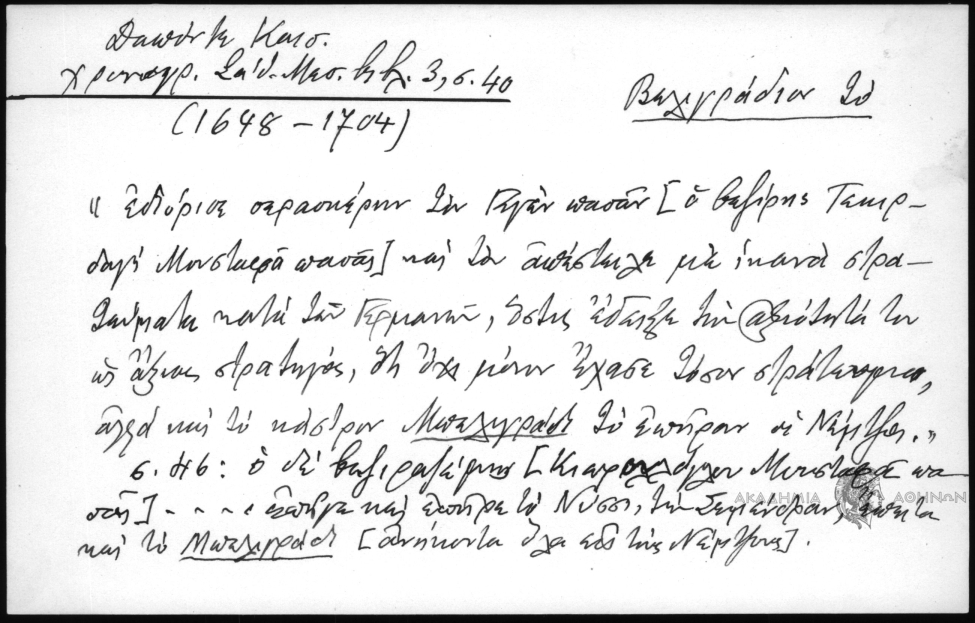 Δαπόντε Καισ.
χρονογρ. Σάθ. Μεσ. βιβλ. 3, σ. 40
(1648 – 1704)
Βελιγράδιον τό
« ἐδιόρισε σερασκέρην τὸν Γεγὲν πασᾶν [ὁ βεζίρης Τεκιρ-
δαγλῆ Μουσταφᾶ πασᾶς] καὶ τὸν ἀπέστειλε μὲ ἱκανὰ στρα-
τεύματα κατὰ τῶν Γερμανῶν, ὅστις ἔδειξε τὴν ἀξιότητά του
ὡς ἄξιος στρατηγός, ὅτι ὄχι μόνον ἔχασε τόσον στράτευμα,
ἀλλὰ καὶ τὸ κάστρον Μπελιγράδι τὸ ἐπῆραν οἱ Νέμτζοι.»
σ. 46: ὁ δὲ βεζιραζέμης [Μουσταφᾶ πα-
σᾶς] - - - - ἐπῆγε καὶ ἐπῆρε τὸ Νύσσι, τὴν Σεμένδραν, ἔπειτα
καὶ τὸ Μπελιγράδι [ἀνήκοντα ὅλα εἰς τοὺς Νέμτζους].
ΑΚΑΔΗΜΙΑ ΑΘΗΝΩΝ